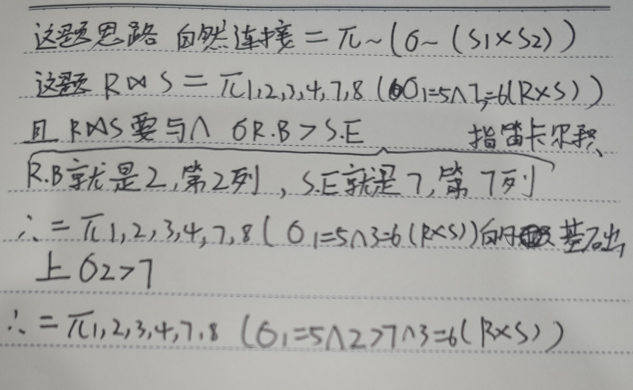 这题思路 自然连接 = π~(σ~(S1×S2))
这题 R⋈S = π1,2,3,4,7,8 (σ1=5∧3=6(R×S))
且 R⋈S 要与∧ σR.B>S.E 指笛卡尔积、
R.B就是2,第2列,S.E就是7,第7列
∴ = π1,2,3,4,7,8 ( σ1=5∧3=6(R×S))的 基础
上 σ2>7
∴ = π1,2,3,4,7,8 (σ1=5∧2>7∧3=6(R×S))